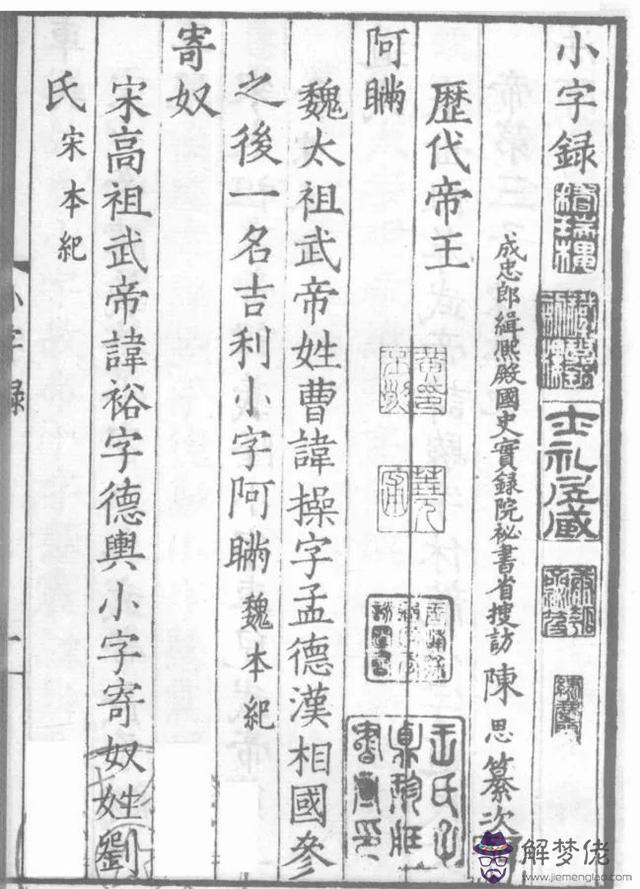 小字録
成忠郎緝熙殿國史實録院祕書省搜訪陳思纂次
歷代帝王
阿瞞
魏太祖武帝姓曹諱操字孟德漢相國參
之後一名吉利小字阿瞞魏本紀
寄奴
宋高祖武帝諱裕字德輿小字寄奴姓劉
氏宋本紀
小字録
士礼居藏
解梦佬
www.jiemenglao.com